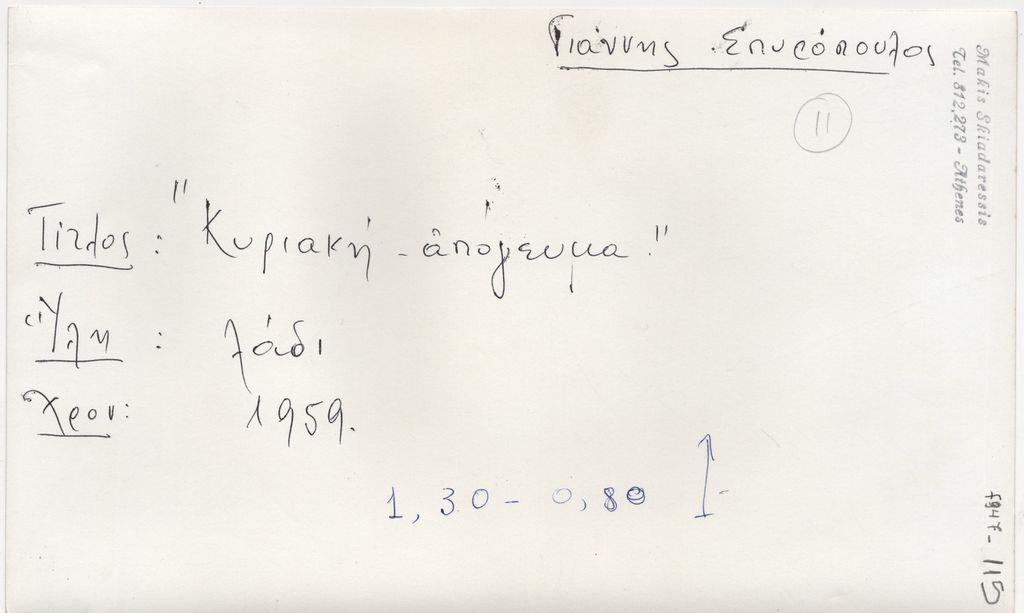 Γιάννης Σπυρόπουλος
11
Makis Skiadaressis
Tel. 812.273 - Athenes
Τίτλος : "Κυριακή - ἀπόγευμα"
Ὕλη : λάδι
Χρον: 1959.
1,30 - 0,80
115